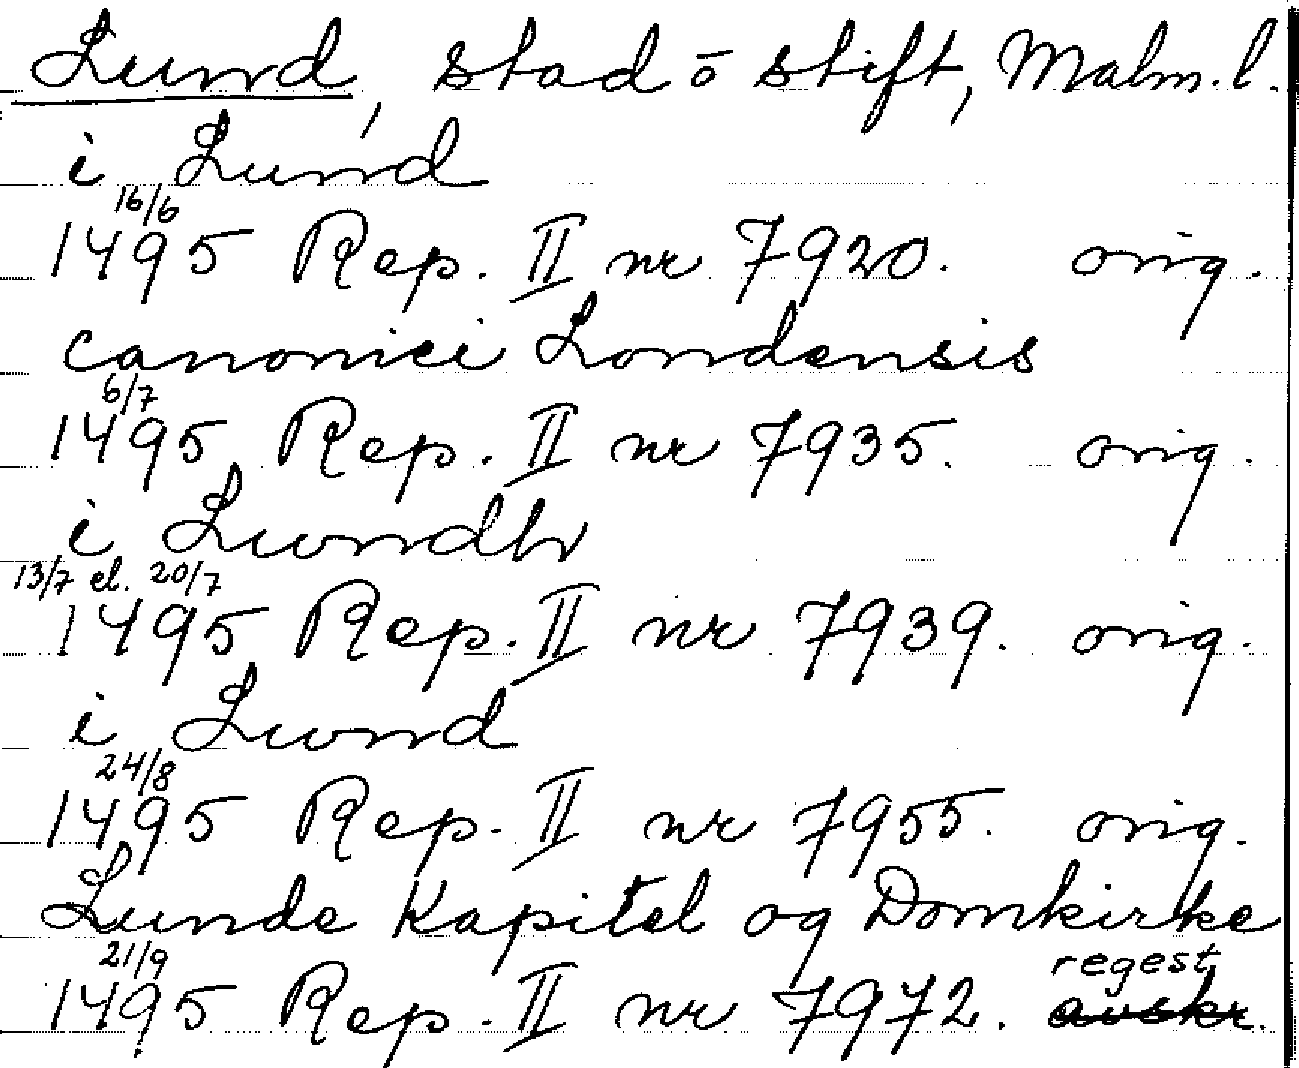 Lund, stad ō stift, Malm. l.
i Lund
16/6
1495 Rep. II nr 7920. orig.
canonici Londensis
6/7
1495 Rep. II nr 7935. orig.
i Lwndh
13/7 el. 20/7
1495 Rep. II nr 7939. orig.
i Lwnd
24/8
1495 Rep. II nr 7955. orig.
Lunde Kapitel og Domkirke
21/9 regest
1495 Rep. II nr 7972. avskr.